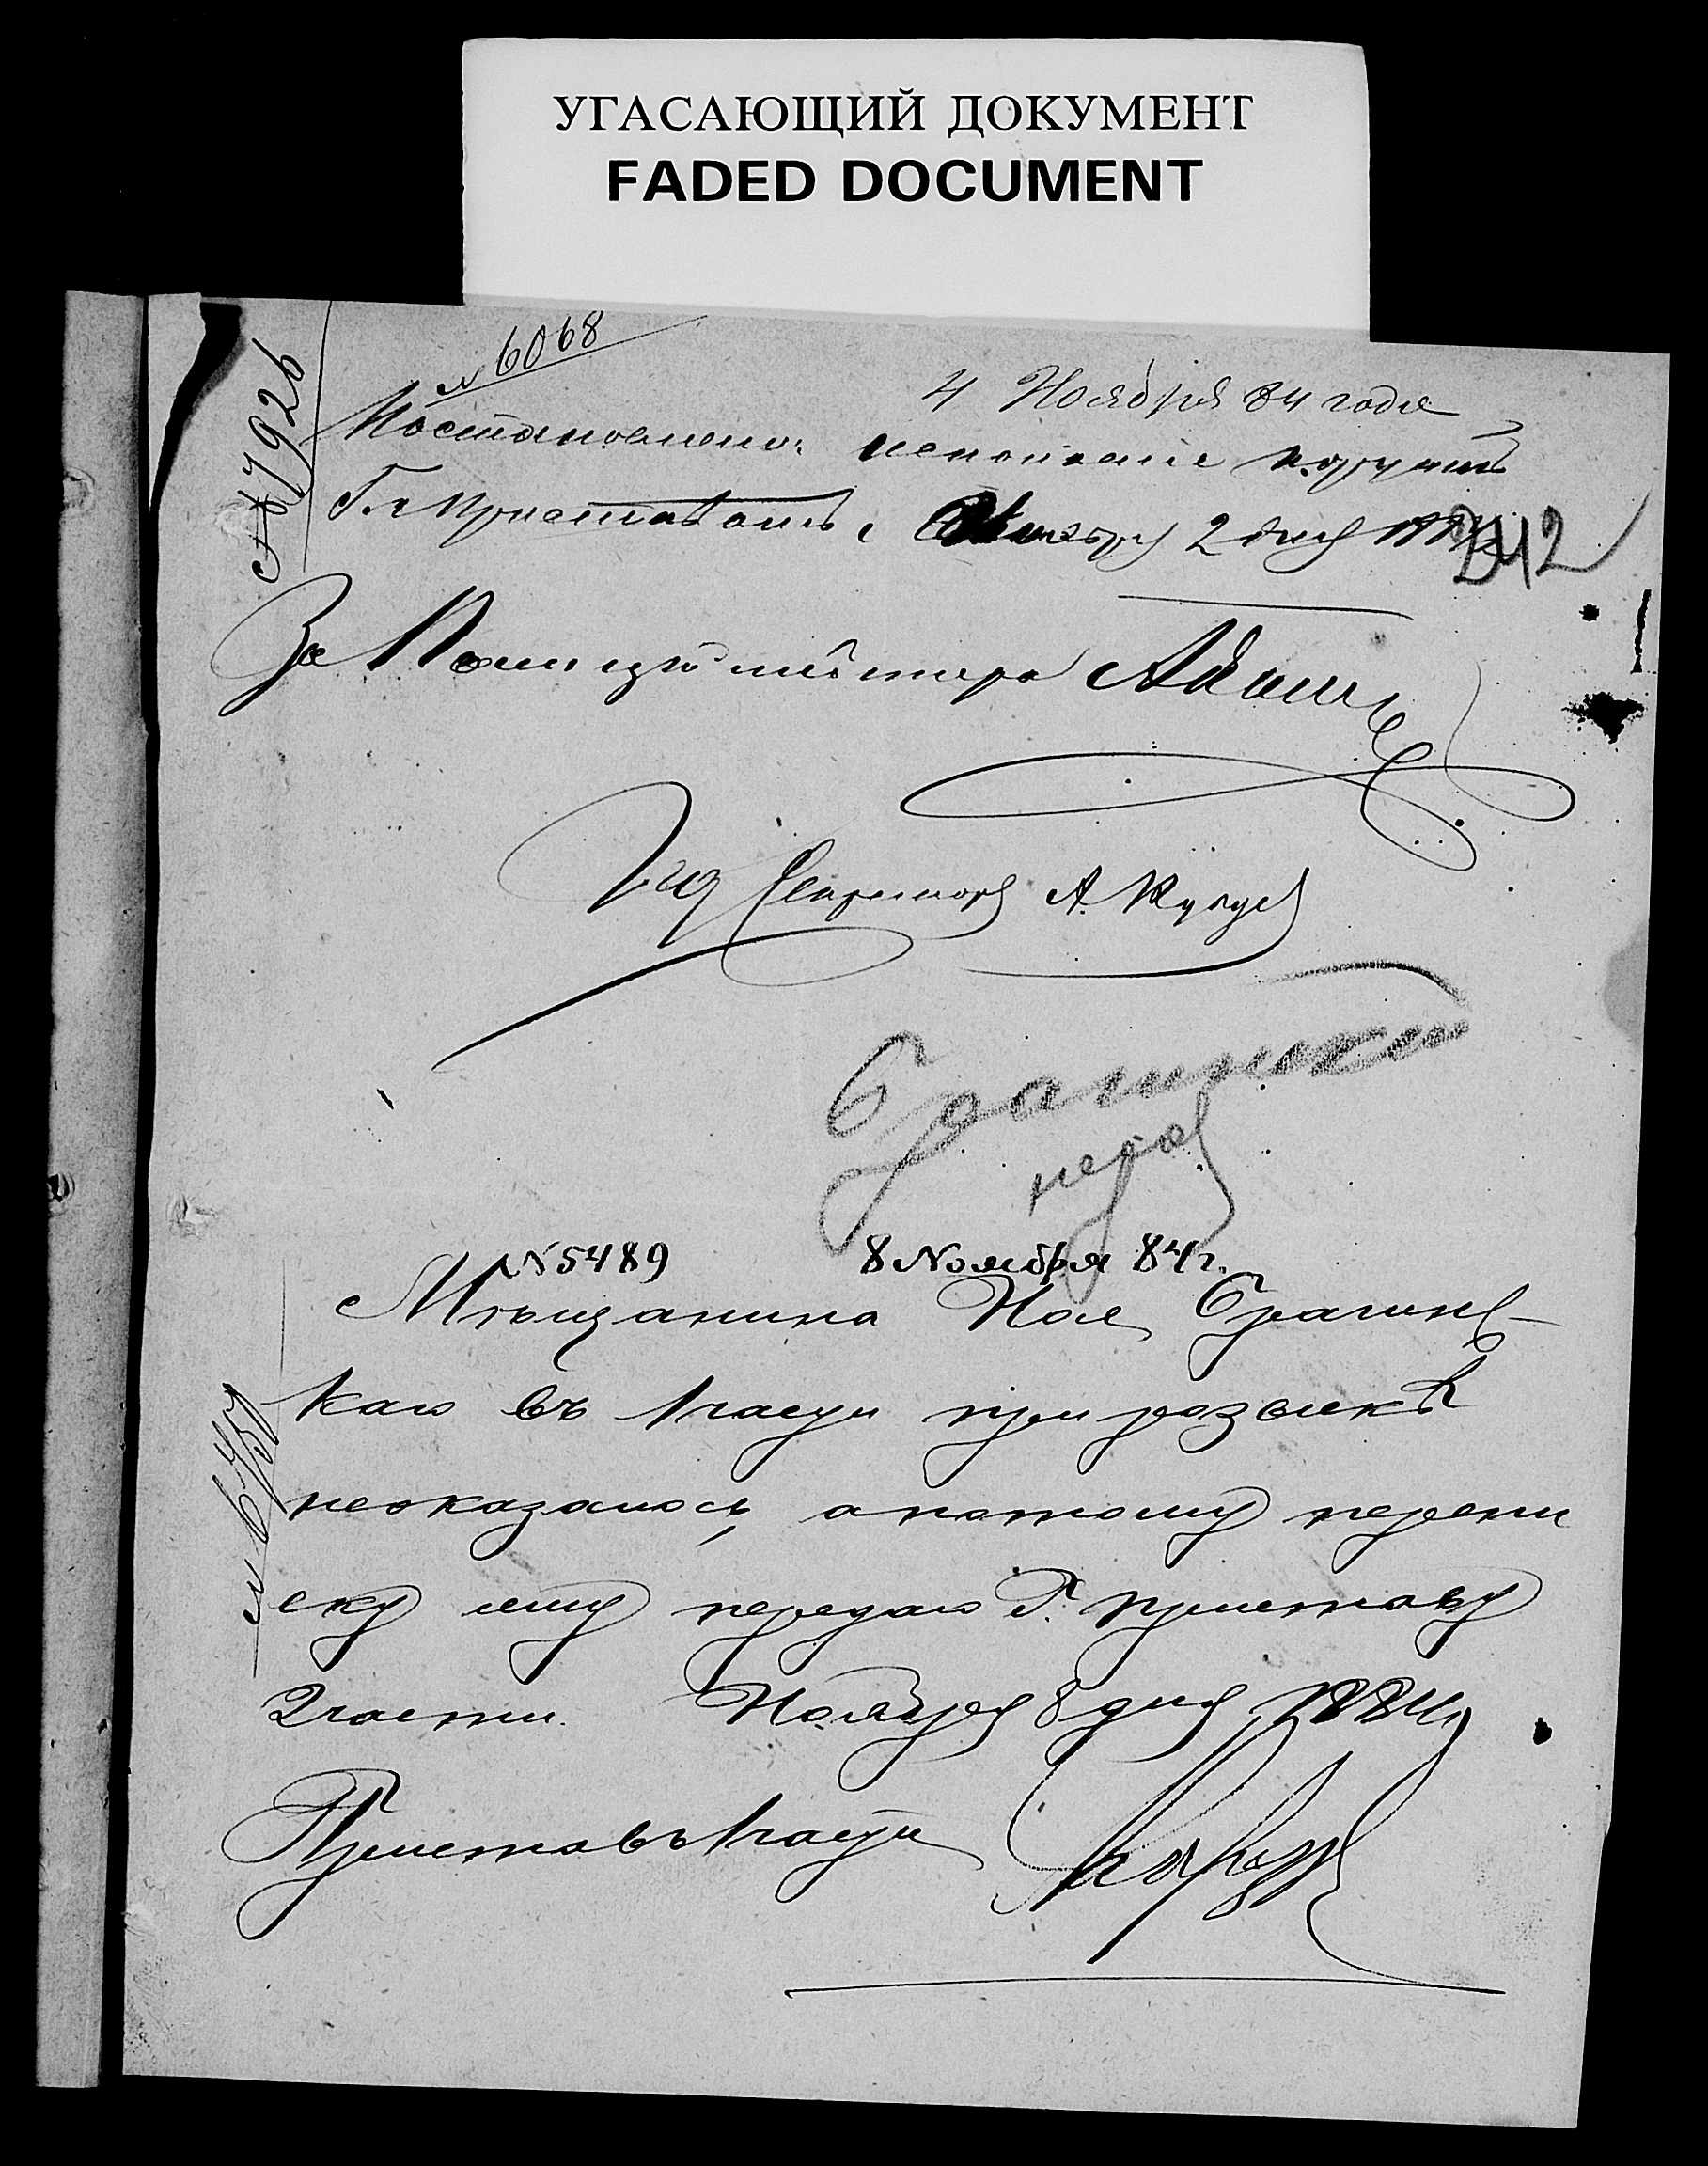 УГАСАЮЩИЙ ДОКУМЕНТ
FADED DOCUMENT
№ 6068
№ 7926
4 Ноября 84 года
Постановлено: исполненіе поручить
Г.г. Приставамъ, 2 дня 1884
242
За Полицiймейстера
Секретарь А.
Срагински
перев
№ 5489 8 Ноября 84 г.
Мѣщанина Ноя Срагинс-
каго въ 1 части при розыскѣ
неоказалось, а потому перепи
ску сiю передаю Г. Приставу
2 части. Ноября 8 дня 1884 г.
№ 6750
Приставъ 1 части